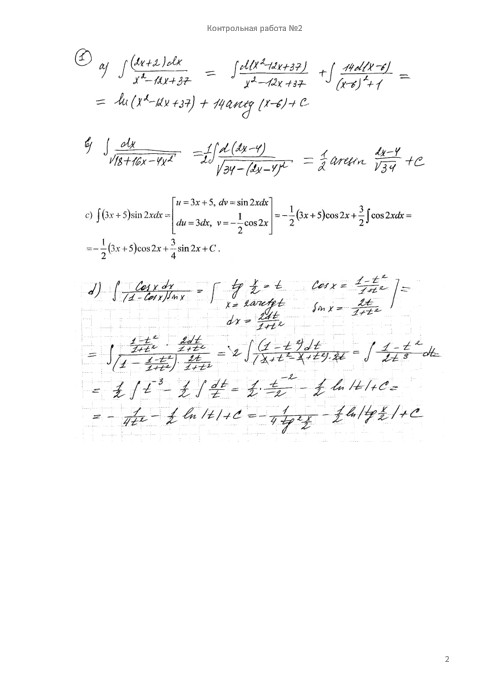 Контрольная работа №2
① a) ∫ (2x+2)dx / (x²-12x+37) = ∫ d(x²-12x+37) / (x²-12x+37) + ∫ 14d(x-6) / ((x-6)²+1) =
= ln(x²-12x+37) + 14arctg(x-6) + C
b) ∫ dx / √(18+16x-4x²) = 1/2 ∫ d(2x-4) / √(34-(2x-4)²) = 1/2 arcsin (2x-4)/√34 + C
c) ∫(3x+5)sin2xdx = [u=3x+5, dv=sin2xdx
du=3dx, v=-1/2 cos2x] = -1/2(3x+5)cos2x + 3/2 ∫cos2xdx =
= -1/2(3x+5)cos2x + 3/4 sin2x + C.
d) ∫ cosx dx / ((1-cosx)sinx) = [ tg x/2 = t cosx = (1-t²)/(1+t²)
x = 2arctgt sinx = 2t/(1+t²) ] =
dx = 2dt/(1+t²)
= ∫ ((1-t²)/(1+t²) · 2dt/(1+t²)) / ((1 - (1-t²)/(1+t²)) · 2t/(1+t²)) = 2∫ (1-t²)dt / ((1+t²-1+t²)·2t) = ∫ (1-t²)/(2t³) dt
= 1/2 ∫ t⁻³ - 1/2 ∫ dt/t = 1/2 · t⁻²/-2 - 1/2 ln|t| + C =
= - 1/(4t²) - 1/2 ln|t| + C = - 1/(4tg² x/2) - 1/2 ln|tg x/2| + C
2